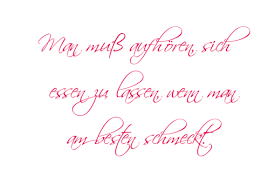 Man muß aufhören, sich
essen zu lassen, wenn man
am besten schmeckt.